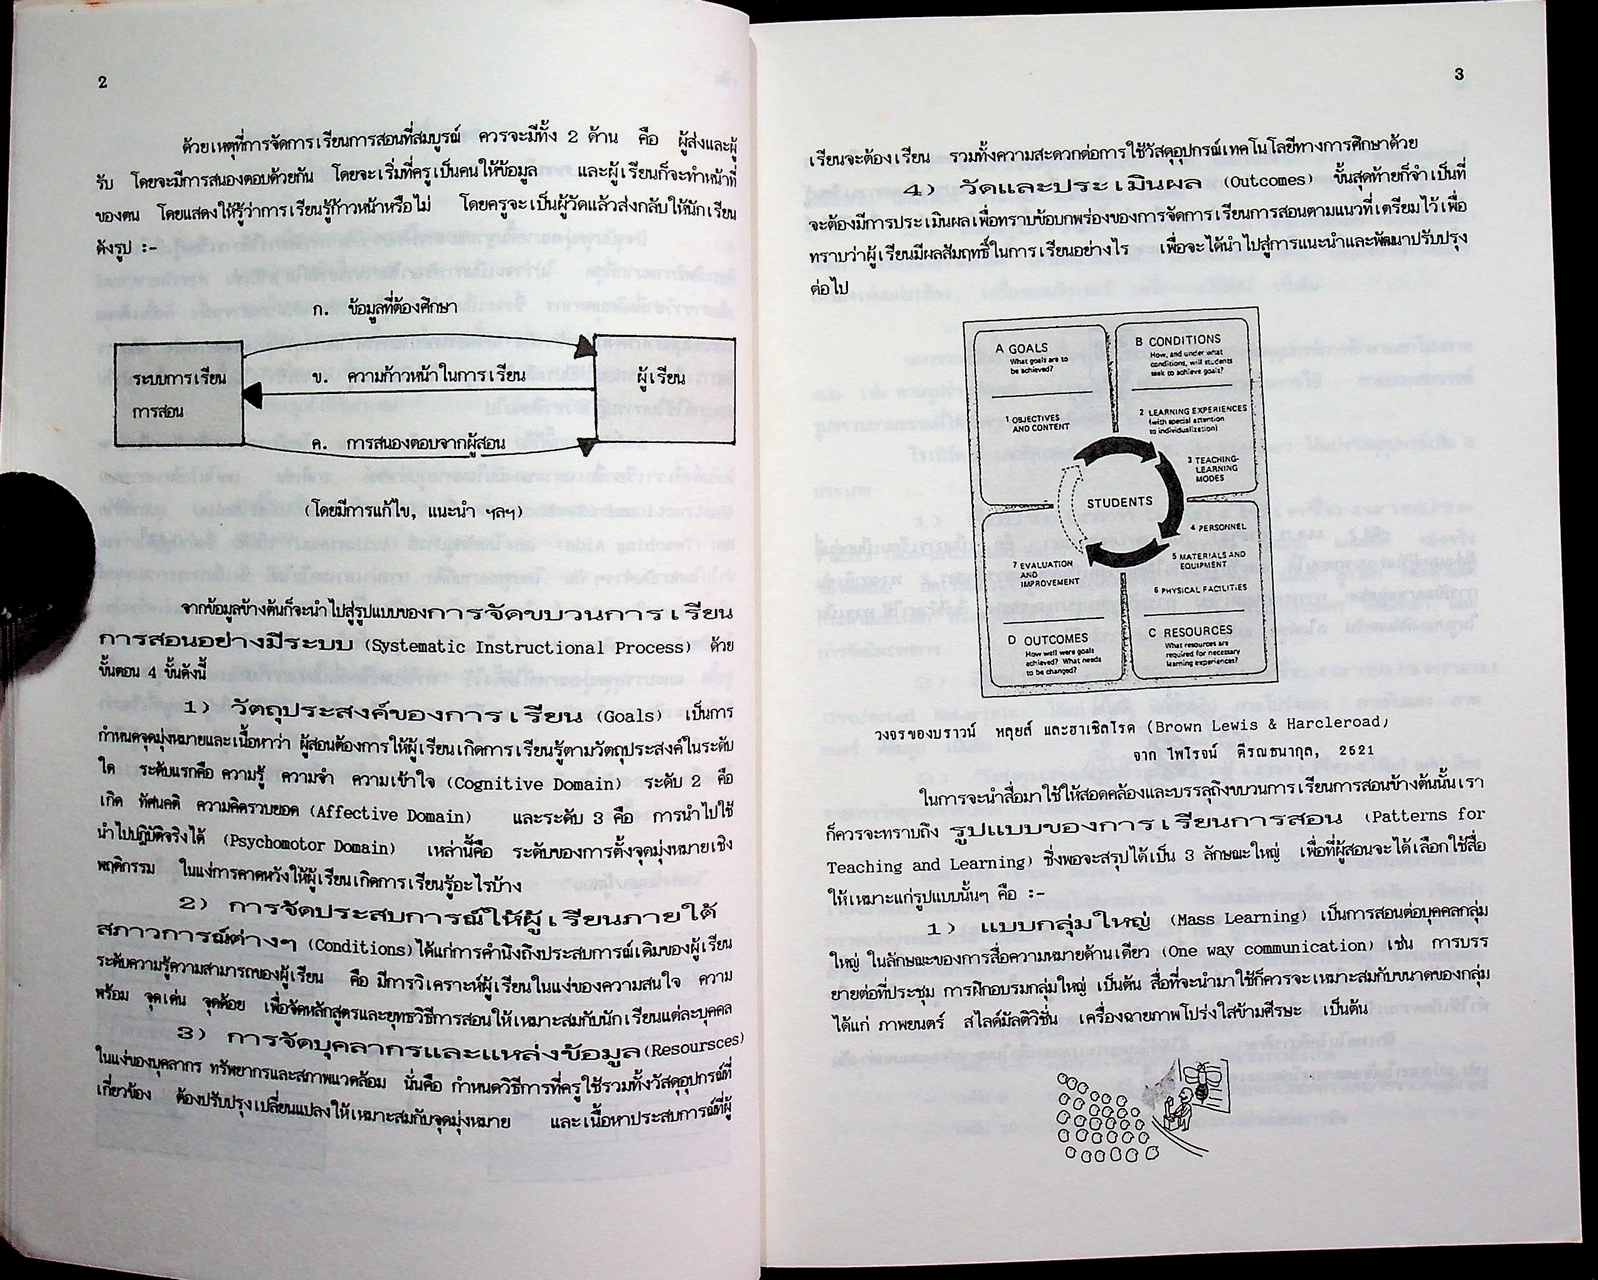 2
ด้วยเหตุที่การจัดการเรียนการสอนที่สมบูรณ์ ควรจะมีทั้ง 2 ด้าน คือ ผู้ส่งและผู้
รับ โดยจะมีการสนองตอบด้วยกัน โดยจะเริ่มที่ครูเป็นคนให้ข้อมูล และผู้เรียนก็จะทำหน้าที่
ของตน โดยแสดงให้รู้ว่าการเรียนรู้ก้าวหน้าหรือไม่ โดยครูจะเป็นผู้วัดแล้วส่งกลับให้นักเรียน
ดังรูป :-
ก. ข้อมูลที่ต้องศึกษา
ระบบการเรียน
การสอน
ข. ความก้าวหน้าในการเรียน
ผู้เรียน
ค. การสนองตอบจากผู้สอน
(โดยมีการแก้ไข, แนะนำ ฯลฯ)
จากข้อมูลข้างต้นก็จะนำไปสู่รูปแบบของการจัดขบวนการเรียน
การสอนอย่างมีระบบ (Systematic Instructional Process) ด้วย
ขั้นตอน 4 ขั้นดังนี้
1) วัตถุประสงค์ของการเรียน (Goals) เป็นการ
กำหนดจุดมุ่งหมายและเนื้อหาว่า ผู้สอนต้องการให้ผู้เรียนเกิดการเรียนรู้ตามวัตถุประสงค์ในระดับ
ใด ระดับแรกคือ ความรู้ ความจำ ความเข้าใจ (Cognitive Domain) ระดับ 2 คือ
เกิด ทัศนคติ ความคิดรวบยอด (Affective Domain) และระดับ 3 คือ การนำไปใช้
นำไปปฏิบัติจริงได้ (Psychomotor Domain) เหล่านี้คือ ระดับของการตั้งจุดมุ่งหมายเชิง
พฤติกรรม ในแง่การคาดหวังให้ผู้เรียนเกิดการเรียนรู้อะไรบ้าง
2) การจัดประสบการณ์ให้ผู้เรียนภายใต้
สภาวการณ์ต่างๆ (Conditions) ได้แก่การคำนึงถึงประสบการณ์เดิมของผู้เรียน
ระดับความรู้ความสามารถของผู้เรียน คือ มีการวิเคราะห์ผู้เรียนในแง่ของความสนใจ ความ
พร้อม จุดเด่น จุดด้อย เพื่อจัดหลักสูตรและยุทธวิธีการสอนให้เหมาะสมกับนักเรียนแต่ละบุคคล
3) การจัดบุคลากรและแหล่งข้อมูล (Resoursces)
ในแง่ของบุคลากร ทรัพยากรและสภาพแวดล้อม นั่นคือ กำหนดวิธีการที่ครูใช้รวมทั้งวัสดุอุปกรณ์ที่
เกี่ยวข้อง ต้องปรับปรุงเปลี่ยนแปลงให้เหมาะสมกับจุดมุ่งหมาย และเนื้อหาประสบการณ์ที่ผู้
3
เรียนจะต้องเรียน รวมทั้งความสะดวกต่อการใช้วัสดุอุปกรณ์เทคโนโลยีทางการศึกษาด้วย
4) วัดและประเมินผล (Outcomes) ขั้นสุดท้ายก็จำเป็นที่
จะต้องมีการประเมินผลเพื่อทราบข้อบกพร่องของการจัดการเรียนการสอนตามแนวที่เตรียมไว้เพื่อ
ทราบว่าผู้เรียนมีผลสัมฤทธิ์ในการเรียนอย่างไร เพื่อจะได้นำไปสู่การแนะนำและพัฒนาปรับปรุง
ต่อไป
A GOALS
What goals are to
be achieved?
B CONDITIONS
How, and under what
conditions, will students
seek to achieve goals?
1 OBJECTIVES
AND CONTENT
2 LEARNING EXPERIENCES
(with special attention
to individualization)
3 TEACHING-
LEARNING
MODES
STUDENTS
4 PERSONNEL
5 MATERIALS AND
EQUIPMENT
6 PHYSICAL FACILITIES
7 EVALUATION
AND
IMPROVEMENT
D OUTCOMES
How well were goals
achieved? What needs
to be changed?
C RESOURCES
What resources are
required for necessary
learning experiences?
วงจรของบราวน์ หลุยส์ และฮาเซิลโรค (Brown Lewis & Harcleroad)
จาก ไพโรจน์ ตีรณธนากุล, 2521
ในการจะนำสื่อมาใช้ให้สอดคล้องและบรรลุถึงขบวนการเรียนการสอนข้างต้นนั้นเรา
ก็ควรจะทราบถึง รูปแบบของการเรียนการสอน (Patterns for
Teaching and Learning) ซึ่งพอจะสรุปได้เป็น 3 ลักษณะใหญ่ เพื่อที่ผู้สอนจะได้เลือกใช้สื่อ
ให้เหมาะแก่รูปแบบนั้นๆ คือ :-
1) แบบกลุ่มใหญ่ (Mass Learning) เป็นการสอนต่อบุคคลกลุ่ม
ใหญ่ ในลักษณะของการสื่อความหมายด้านเดียว (One way communication) เช่น การบรร
ยายต่อที่ประชุม การฝึกอบรมกลุ่มใหญ่ เป็นต้น สื่อที่จะนำมาใช้ก็ควรจะเหมาะสมกับขนาดของกลุ่ม
ได้แก่ ภาพยนตร์ สไลด์มัลติวิชั่น เครื่องฉายภาพโปร่งใสข้ามศีรษะ เป็นต้น